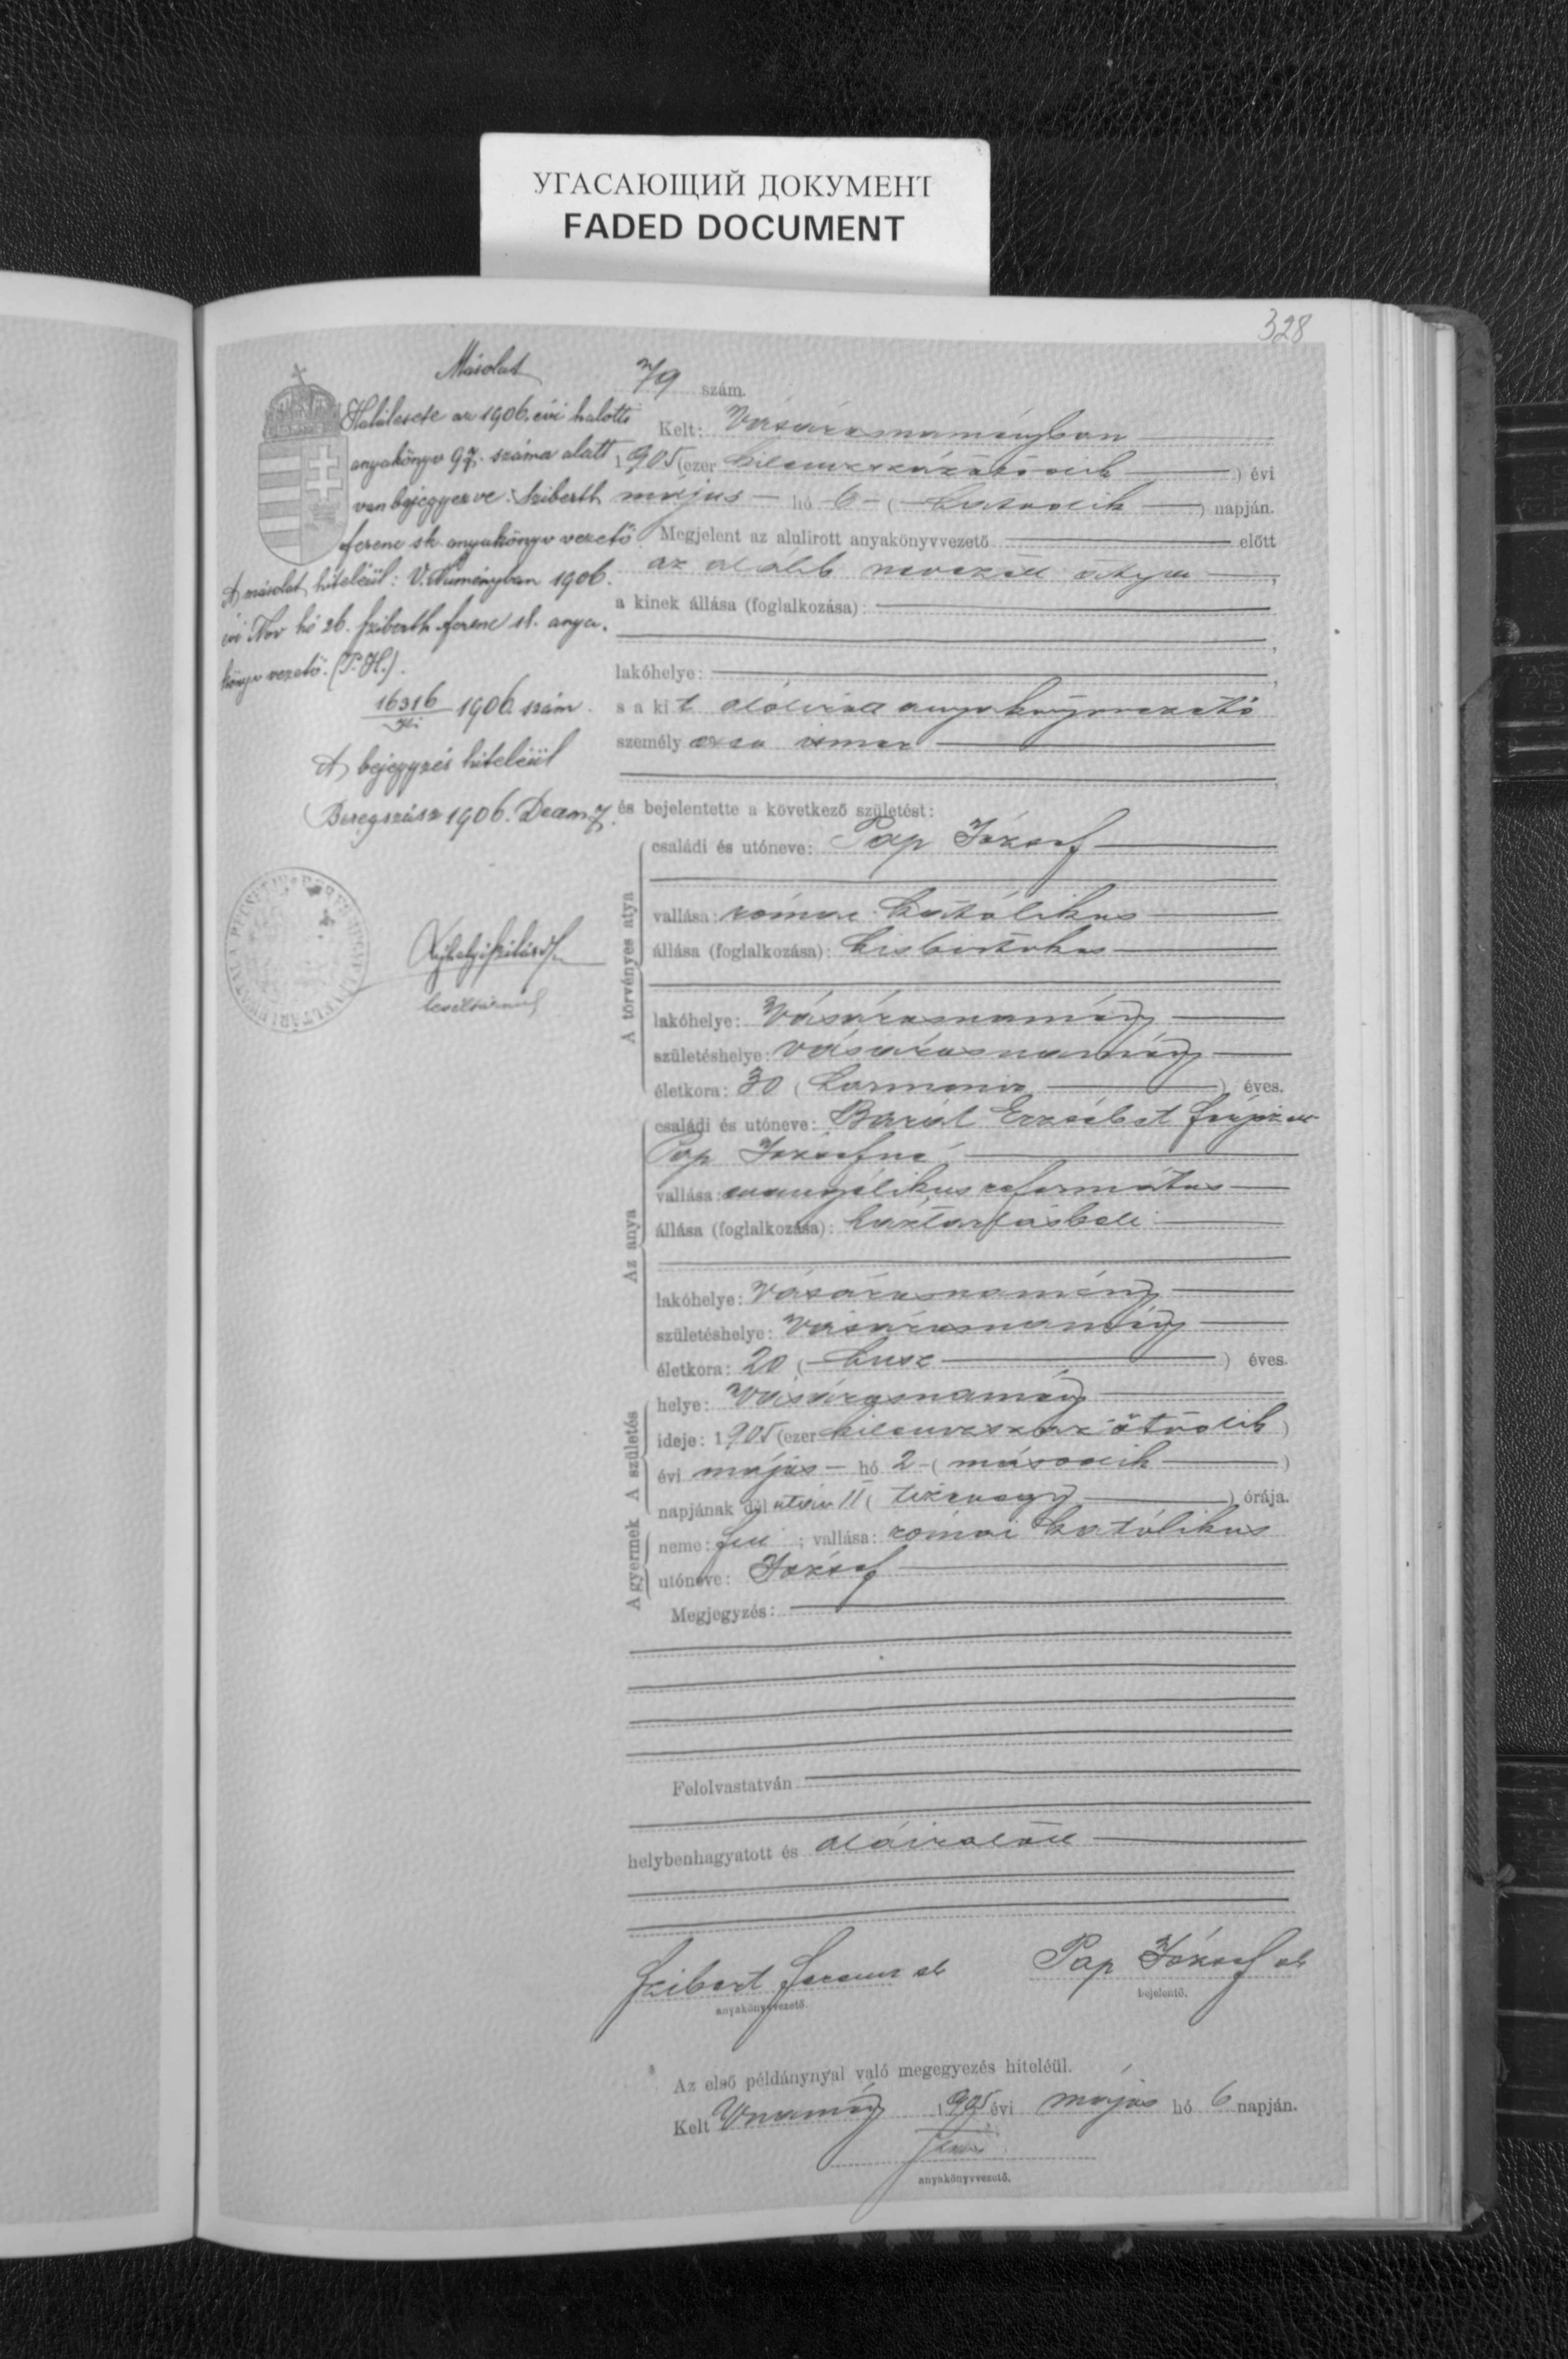 УГАСАЮЩИЙ ДОКУМЕНТ
FADED DOCUMENT
328
Másolat
Halálesete az 1906. évi halotti
anyakönyv 97. száma alatt
van bejegyezve. Sziberth
Ferenc sk. anyakönyv vezető
A másolat hiteléül: V.Naményban 1906.
évi Nov hó 26. Sziberth Ferenc sk. anya-
könyv vezető. (P.H.).
16316 1906. szám.
A bejegyzés hiteléül
Beregszász 1906. Decem 7.
79 szám.
Kelt: Vásárosnaményban
1905 (ezer kilencszázötödik) évi
május hó 6 (hatodik) napján.
Megjelent az alulirott anyakönyvvezető előtt
az alább nevezett atya,
a kinek állása (foglalkozása):
lakóhelye:
s a kit alólirott anyakönyvvezető
személyesen ismer
és bejelentette a következő születést:
A törvényes atya
családi és utóneve: Pap József
vallása: római katólikus
állása (foglalkozása): kisbirtokos
lakóhelye: Vásárosnamény
születéshelye: Vásárosnamény
életkora: 30 (harminc) éves.
Az anya
családi és utóneve: Erzsébet férjezett
Pap Józsefné
vallása: evangélikus református
állása (foglalkozása): háztartásbeli
lakóhelye: Vásárosnamény
születéshelye: Vásárosnamény
életkora: 20 (husz) éves.
A születés
helye: Vásárosnamény
ideje: 1905 (ezer kilencszáz ötödik)
évi május hó 2 (második)
napjának dél után 11 (tizenegy) órája.
A gyermek
neme: fiú; vallása: római katólikus
utóneve: József
Megjegyzés:
Felolvastatván
helybenhagyatott és aláiratott
Szibert Ferenc sk
anyakönyvvezető.
Pap József sk
bejelentő.
Az első példánynyal való megegyezés hiteléül.
Kelt Vnamény 1905 évi május hó 6 napján.
anyakönyvvezető.